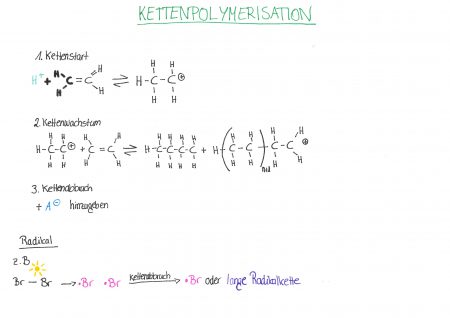 KETTENPOLYMERISATION
1. Kettenstart
H⁺ + H H C = C H H ⇌ H - C - C ⊕ H H H H
2. Kettenwachstum
H - C - C ⊕ H H H H + H H C = C H H ⇌ H - C - C - C - C H H H H H H H H + H ( C - C ) C - C ⊕ H H H H H H H H
3. Kettenabbruch
+ A⊖ hinzugeben
Radikal
z.B.
Br — Br → •Br •Br Kettenabbruch → •Br oder lange Radikalkette